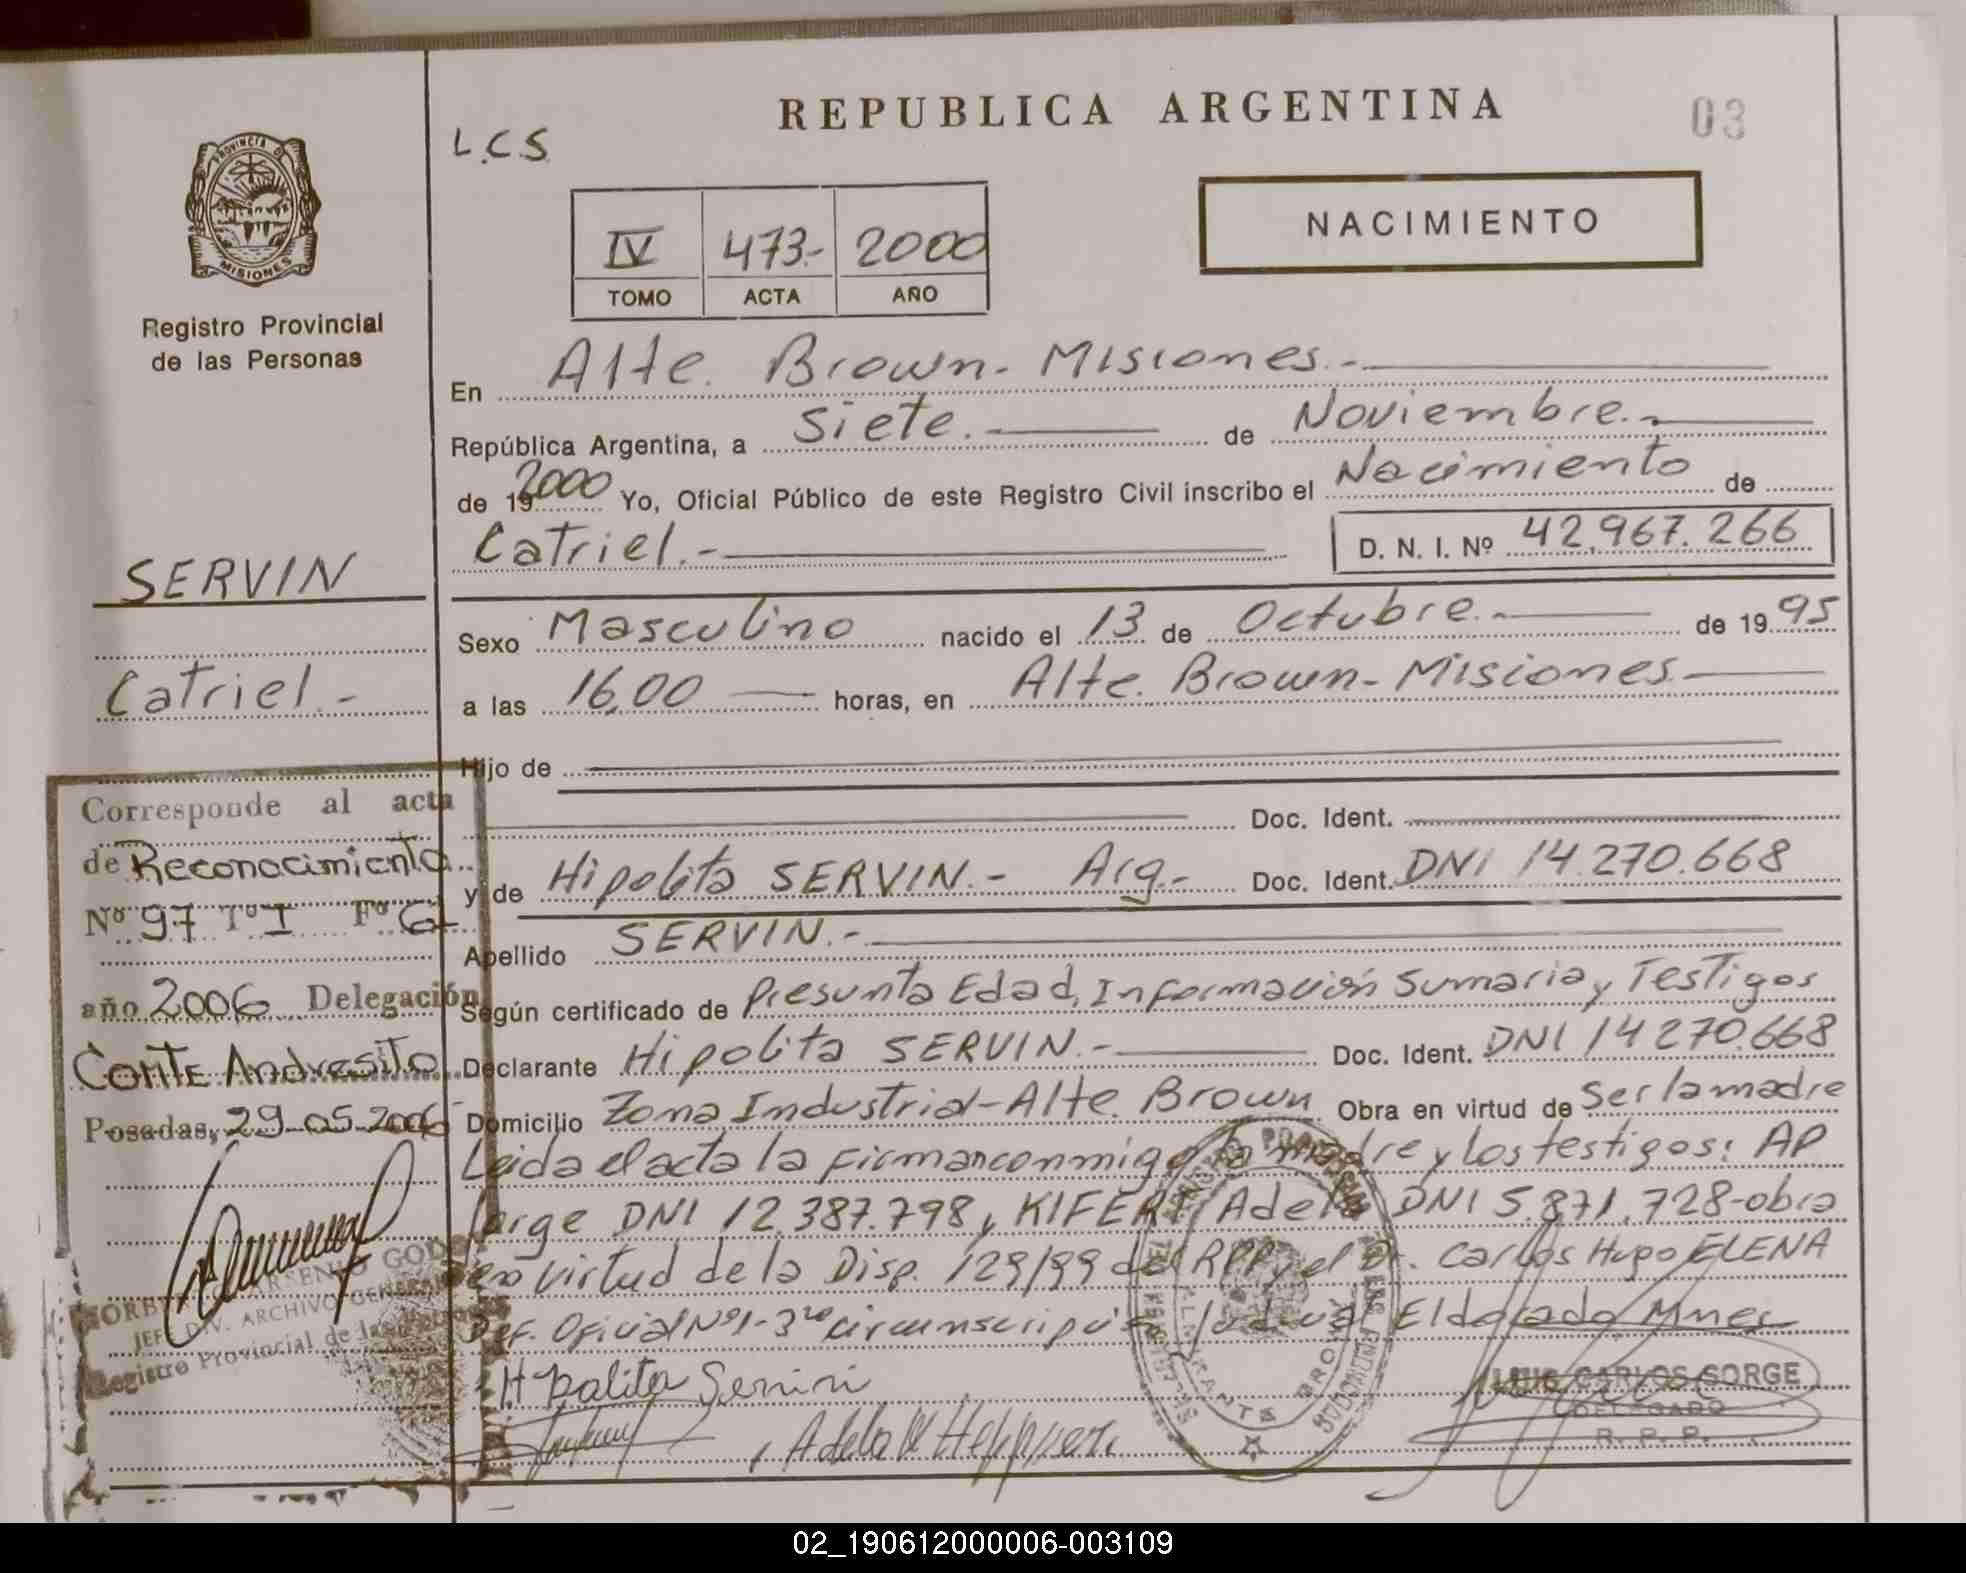 REPUBLICA ARGENTINA
03
L.C.S.
PROVINCIA DE
MISIONES
Registro Provincial
de las Personas
IV 473.- 2000
TOMO ACTA AÑO
NACIMIENTO
En Alte. Brown - Misiones.-
República Argentina, a Siete. de Noviembre.-
de 19 2000 Yo, Oficial Público de este Registro Civil inscribo el Nacimiento de
Catriel.-
D. N. I. Nº 42.967.266
SERVIN
Catriel.-
Sexo Masculino nacido el 13 de Octubre.- de 19 95
a las 16,00 horas, en Alte. Brown - Misiones.
Hijo de
Doc. Ident.
y de Hipolita SERVIN.- Arg.- Doc. Ident. DNI 14.270.668
Apellido SERVIN.-
Según certificado de Presunta Edad, Información Sumaria y Testigos
Declarante Hipolita SERVIN.- Doc. Ident. DNI 14270.668
Domicilio Zona Industrial - Alte. Brown Obra en virtud de Ser la madre
Leida el acta la firman conmigo la madre y los testigos: AP
Jorge DNI 12.387.798 y KIFERT Adela DNI 5.871.728 - obra
en virtud de la Disp. 129/99 del RPP y el Dr. Carlos Hugo ELENA
Def. Oficial Nº1 - 3ra circunscripción Judicial Eldorado Mnes
Hipolita Servin
Adela
LUIS CARLOS SORGE
DELEGADO
R. P. P.
Corresponde al acta
de Reconocimiento
Nº 97 Tº I Fº
año 2006 Delegación
Comte Andresito
Posadas, 29-05-2006
ARSENIO
JEFE DIV. ARCHIVO GENERAL
Registro Provincial de las Personas
02_190612000006-003109